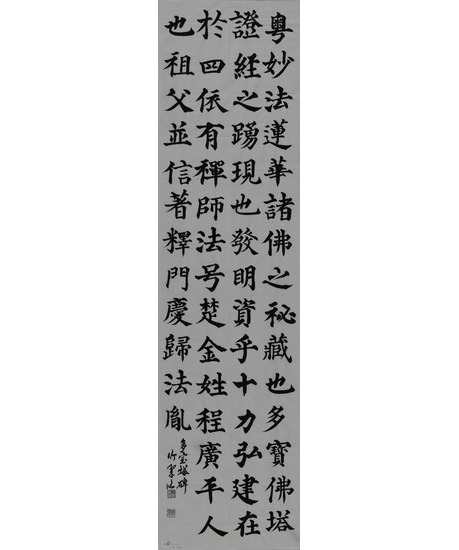 粵妙法蓮華諸佛之祕藏也多寶佛塔
證經之踴現也發明資乎十力弘建在
於四依有禪師法号楚金姓程廣平人
也祖父並信著釋門慶歸法胤
多宝塔碑